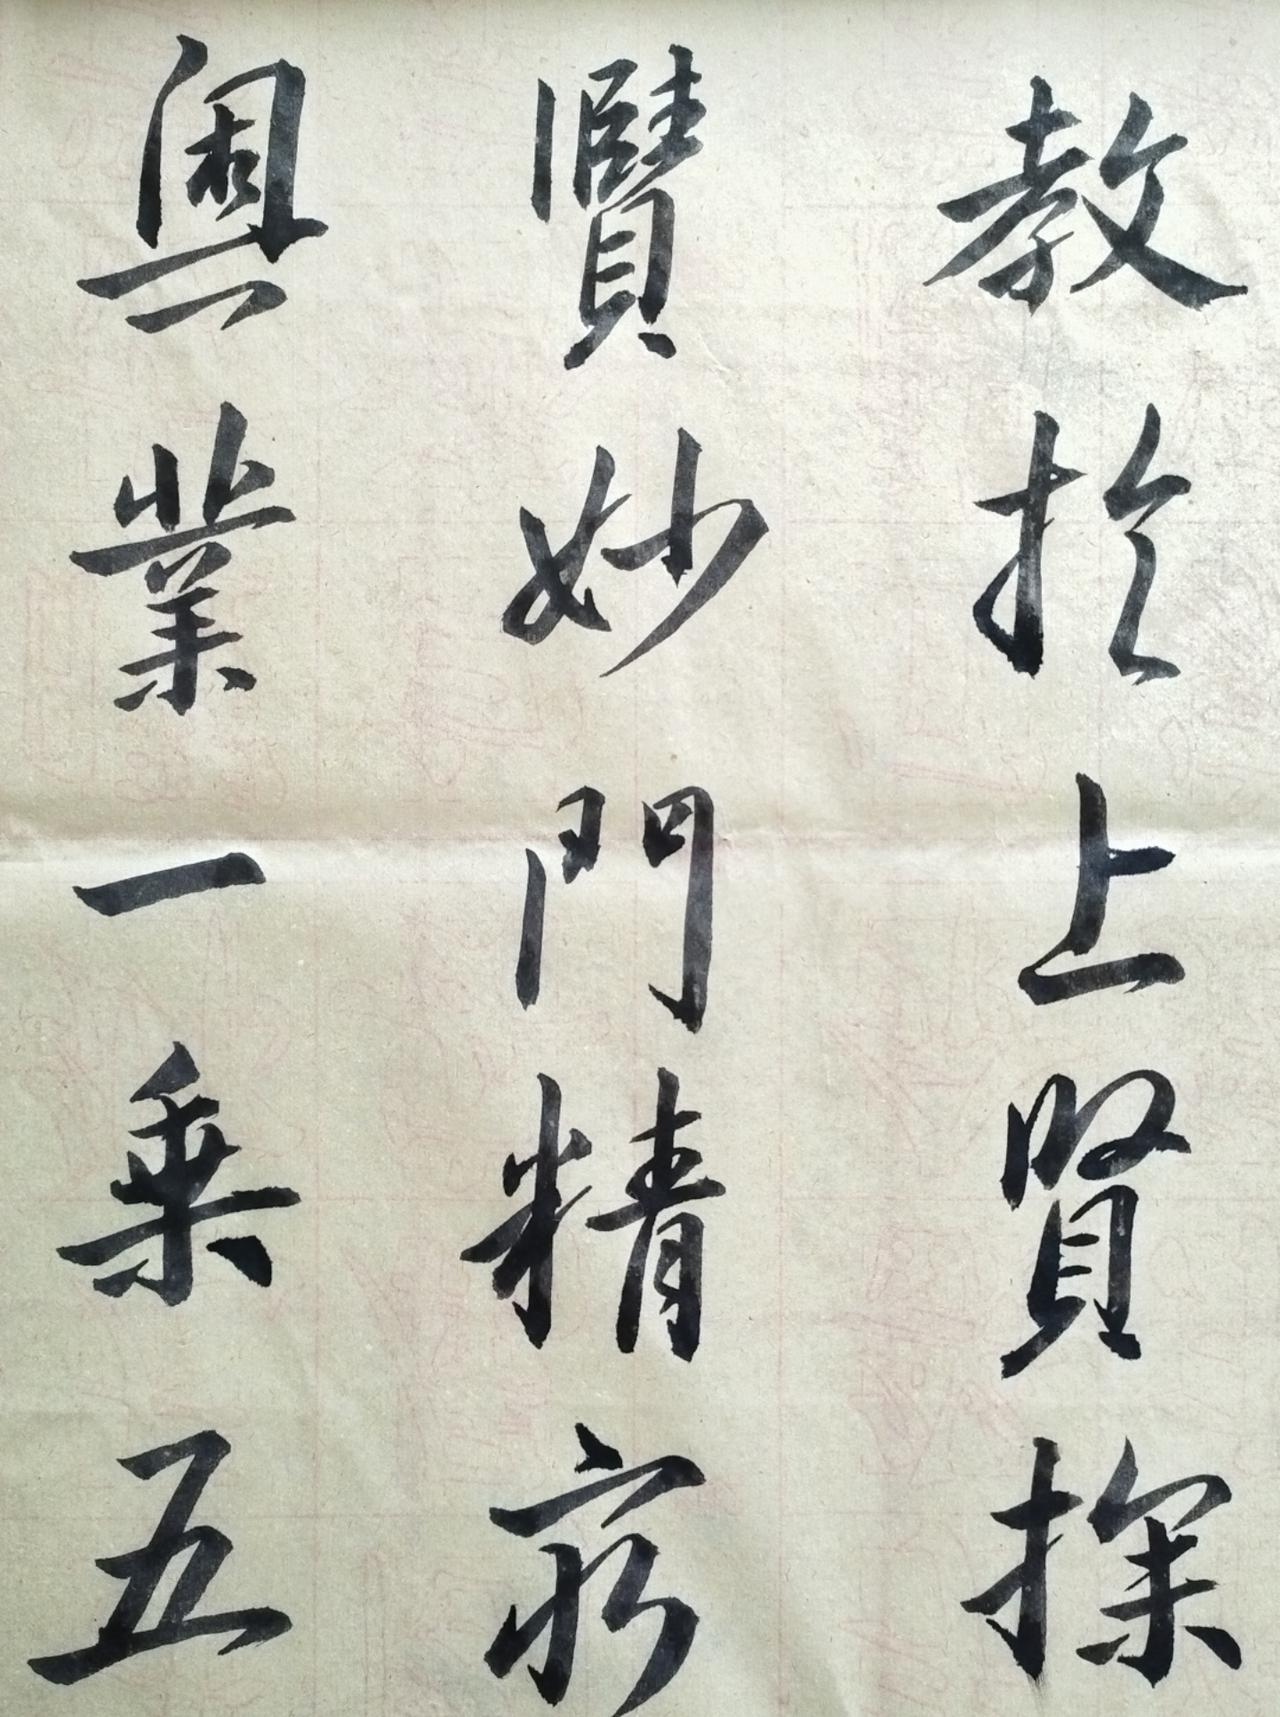 教扵上賢探
賾妙門精窮
奥業一乘五